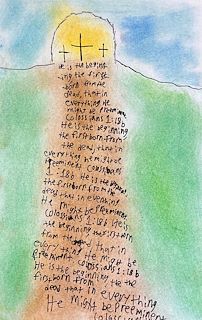 He is the beginn
ing the first
born from the
dead, that in
everything He
might be preeminent
Colossians 1:18b
He is the beginning
the firstborn from
the dead, that in
everything he might be
preeminent Colossians
1:18b He is the beginning
the firstborn from the
dead that in everything
He might be Preeminent
Colossians 1:18b He is
the beginning the firstborn
from the dead that in
everything He might be
preeminent Colossians 1:18b
He is the beginning the
firstborn from the
dead that in everything
He might be preeminent